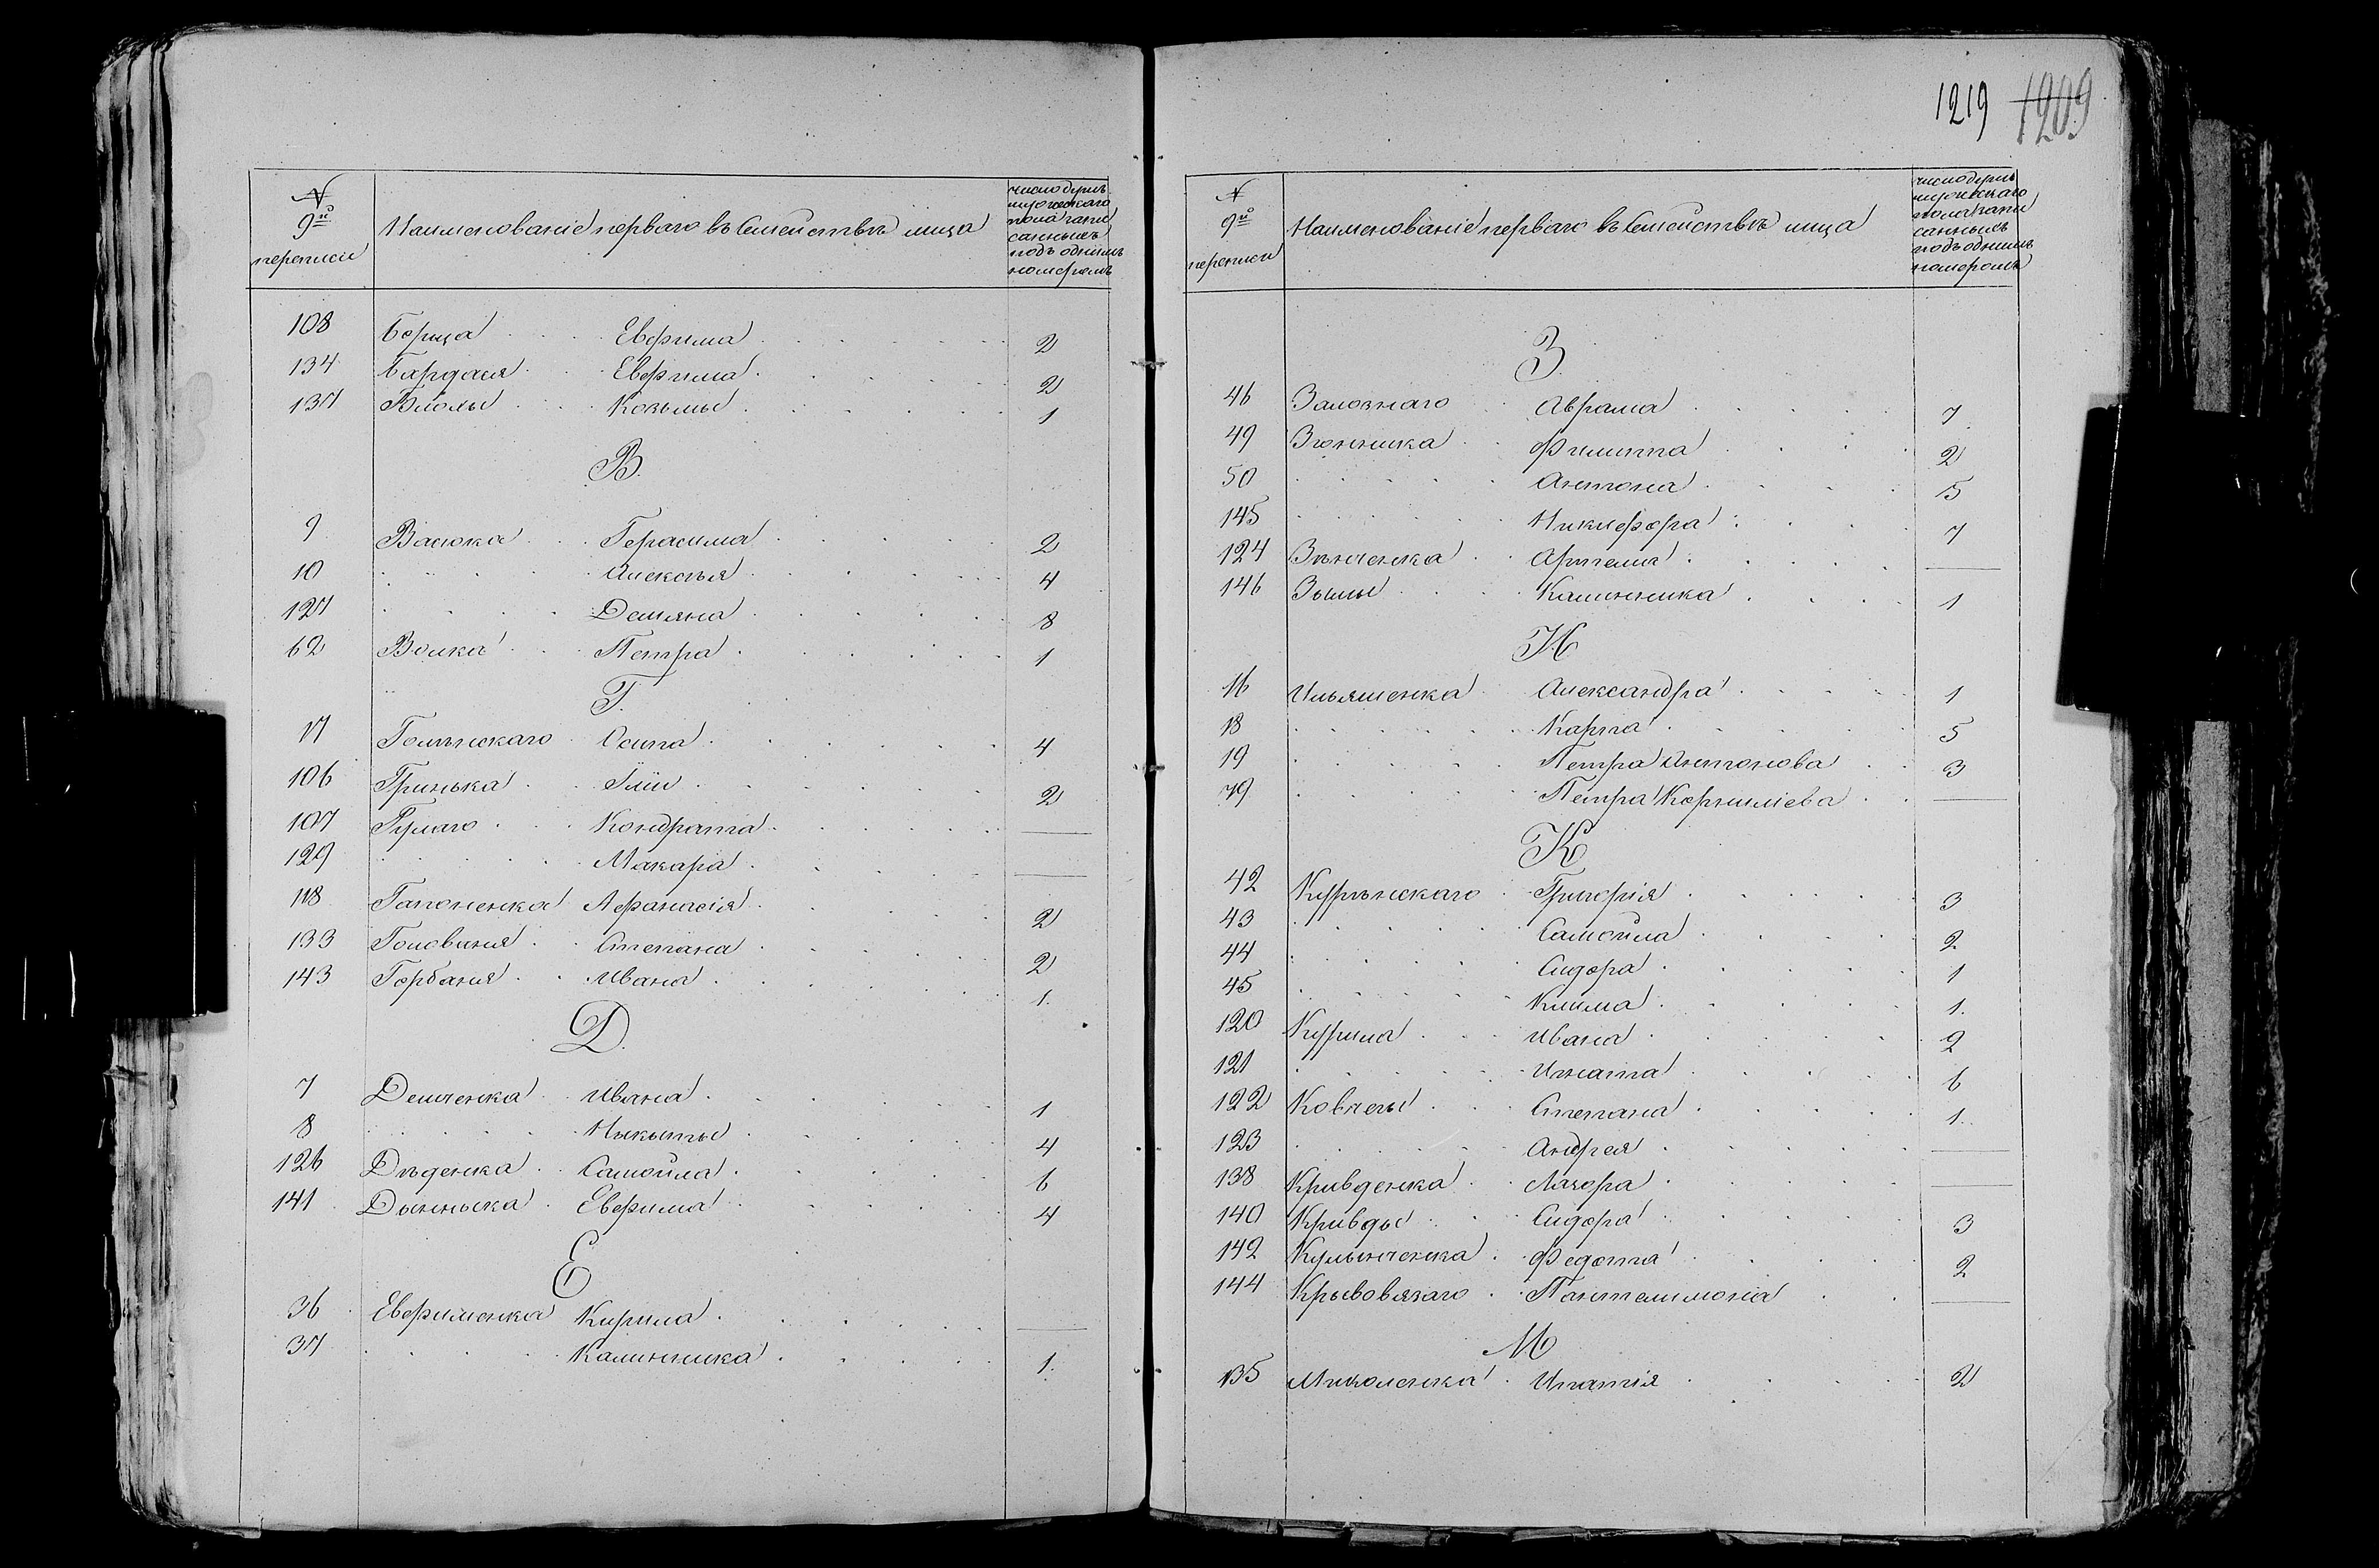 1219 1209
№ 9й переписи
Наименованіе перваго въ Семействѣ лица
число душъ мужескаго пола запи санныхъ подъ однимъ номеромъ
108 Борща Евфима 2
134 Бардася Евфима 2
137 Козьмы 1
В.
9 Васюка Герасима 2
10 Алексѣя 4
127 Демяна 8
62 Волка Петра 1
Г.
17 Голѣнскаго Осипа 4
106 Гринька Iліи 2
107 Гулаго Кондрата —
129 Макара —
118 Гапоненка Афанасія 2
133 Головиня Степана 2
143 Горбаня Ивана 1.
Д.
7 Демченка Ивана 1
8 Никиты 4
126 Дѣденка Самойла 6
141 Евфима 4
Е
36 Евфименка Кирила —
37 Калинника 1.
№ 9й переписи
Наименованіе перваго въ Семействѣ лица
число душъ мужескаго пола запи санныхъ подъ однимъ номеромъ
З.
46 Заловнаго Абрама 7
49 Згонника Филиппа 2
50 Антона 5
145 Никифора 7
124 Зѣнченка Артема —
146 Зымы Калинника 1
И
16 Ильяшенка Александра 1
18 Карпа 5
19 Петра Антонова 3
79 Петра Корниліева —
К
42 Курѣнскаго Григорія 3
43 Самойла 2
44 Сидора 1
45 Клима 1.
120 Курила Ивана 2
121 Игната 6
122 Ковпеы Степана 1.
123 Андрея —
138 Кривденка Лазора —
140 Кривды Сидора 3
142 Кулынченка Федота 2
144 Крывовязаго Пантелимона —
М
135 Миколенка Ипатія 2